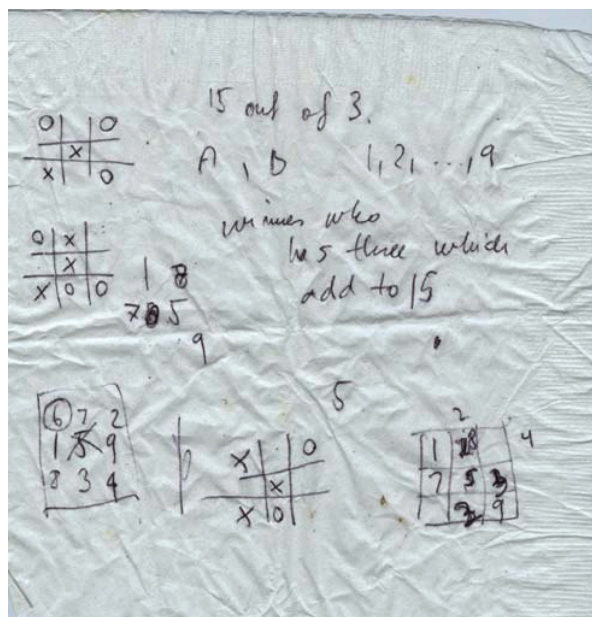 15 out of 3.
A, B 1, 2, ..., 9
O O
X
X O
winner who
has three which
add to 15
O X
X
X O O
1 8
7 5
9
5
6 7 2
1 5 9
8 3 4
X O
X
X O
2
4
1
7 5
9